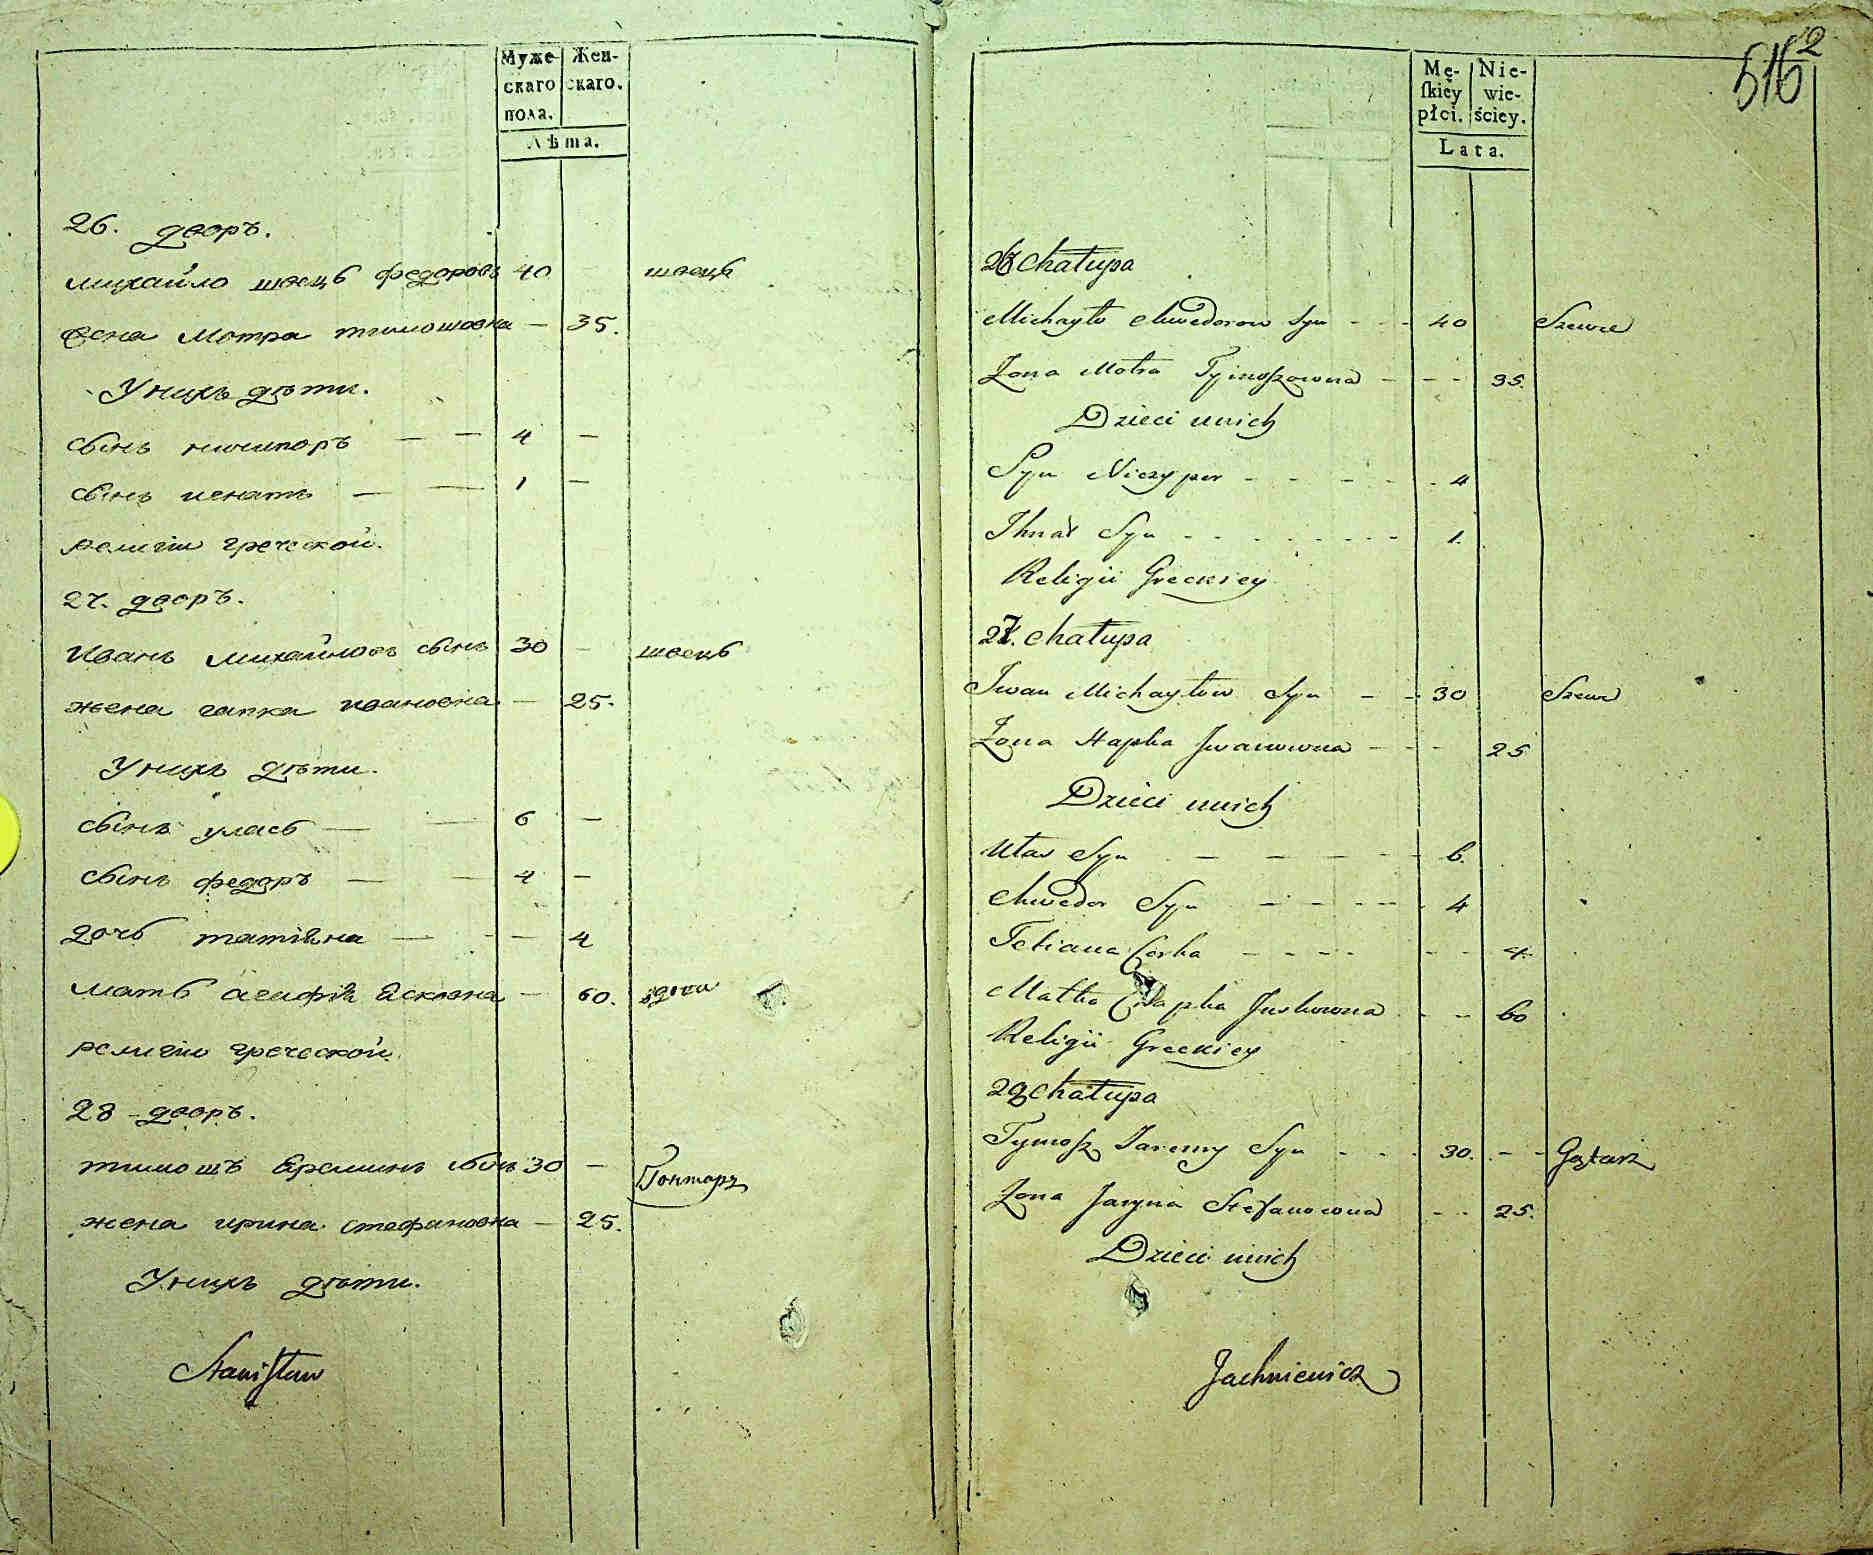 Муже-
скаго
пола.
Жен-
скаго.
Лѣта.
26. дворъ.
михайло швецъ федоровъ 40 — швецъ
жена мотра тимошовна — 35.
У нихъ дѣти.
сынъ ничипоръ — — 4 —
сынъ игнатъ — — 1 —
религіи греческой.
27. дворъ.
иванъ михайловъ сынъ 30 — швецъ
жена гапка ивановна — 25.
У нихъ дѣти.
сынъ уласъ — — 6 —
сынъ федоръ — — 4 —
дочь татіяна — — — 4
мать агафія — 60. вдова
религіи греческой.
28 дворъ.
тимошъ ереминъ сынъ 30 — Гонтаръ
жена ирина стефановна — 25.
У нихъ дѣти.
Stanisław
516
2
Mę-
skiéy
płci.
Nie-
wie-
ściey.
Lata.
26 Chałupa
Michayło Chwedorow Syn - - - 40 Szewc
Zona Motra Tymoszowna - - - 35.
Dzieci u nich
Syn Niczypor - - - - - 4
Ihnat Syn - - - - - - - 1.
Religii Greckiey
27. Chałupa
Iwan Michayłow Syn - - 30 Szewc
Zona Hapka Iwanowna - - - 25
Dzieci u nich
Ułas Syn - - - - - 6.
Chwedor Syn - - - - - 4
Tetiana Corka - - - - - - 4.
Matka Hapka Juskowna - - 60
Religii Greckiey
28 Chałupa
Tymosz Jaremy Syn - - - 30. - - Gątarz
Zona Jaryna Stefanowna - - 25.
Dzieci u nich
Jachniewicz